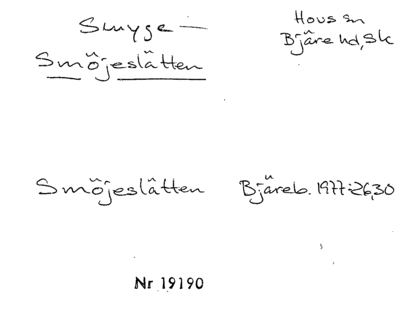 Smyge-
Smöjeslätten
Hovs sn
Bjäre hd, Sk
Smöjeslätten Bjäreb. 1977:26,30
Nr 19190